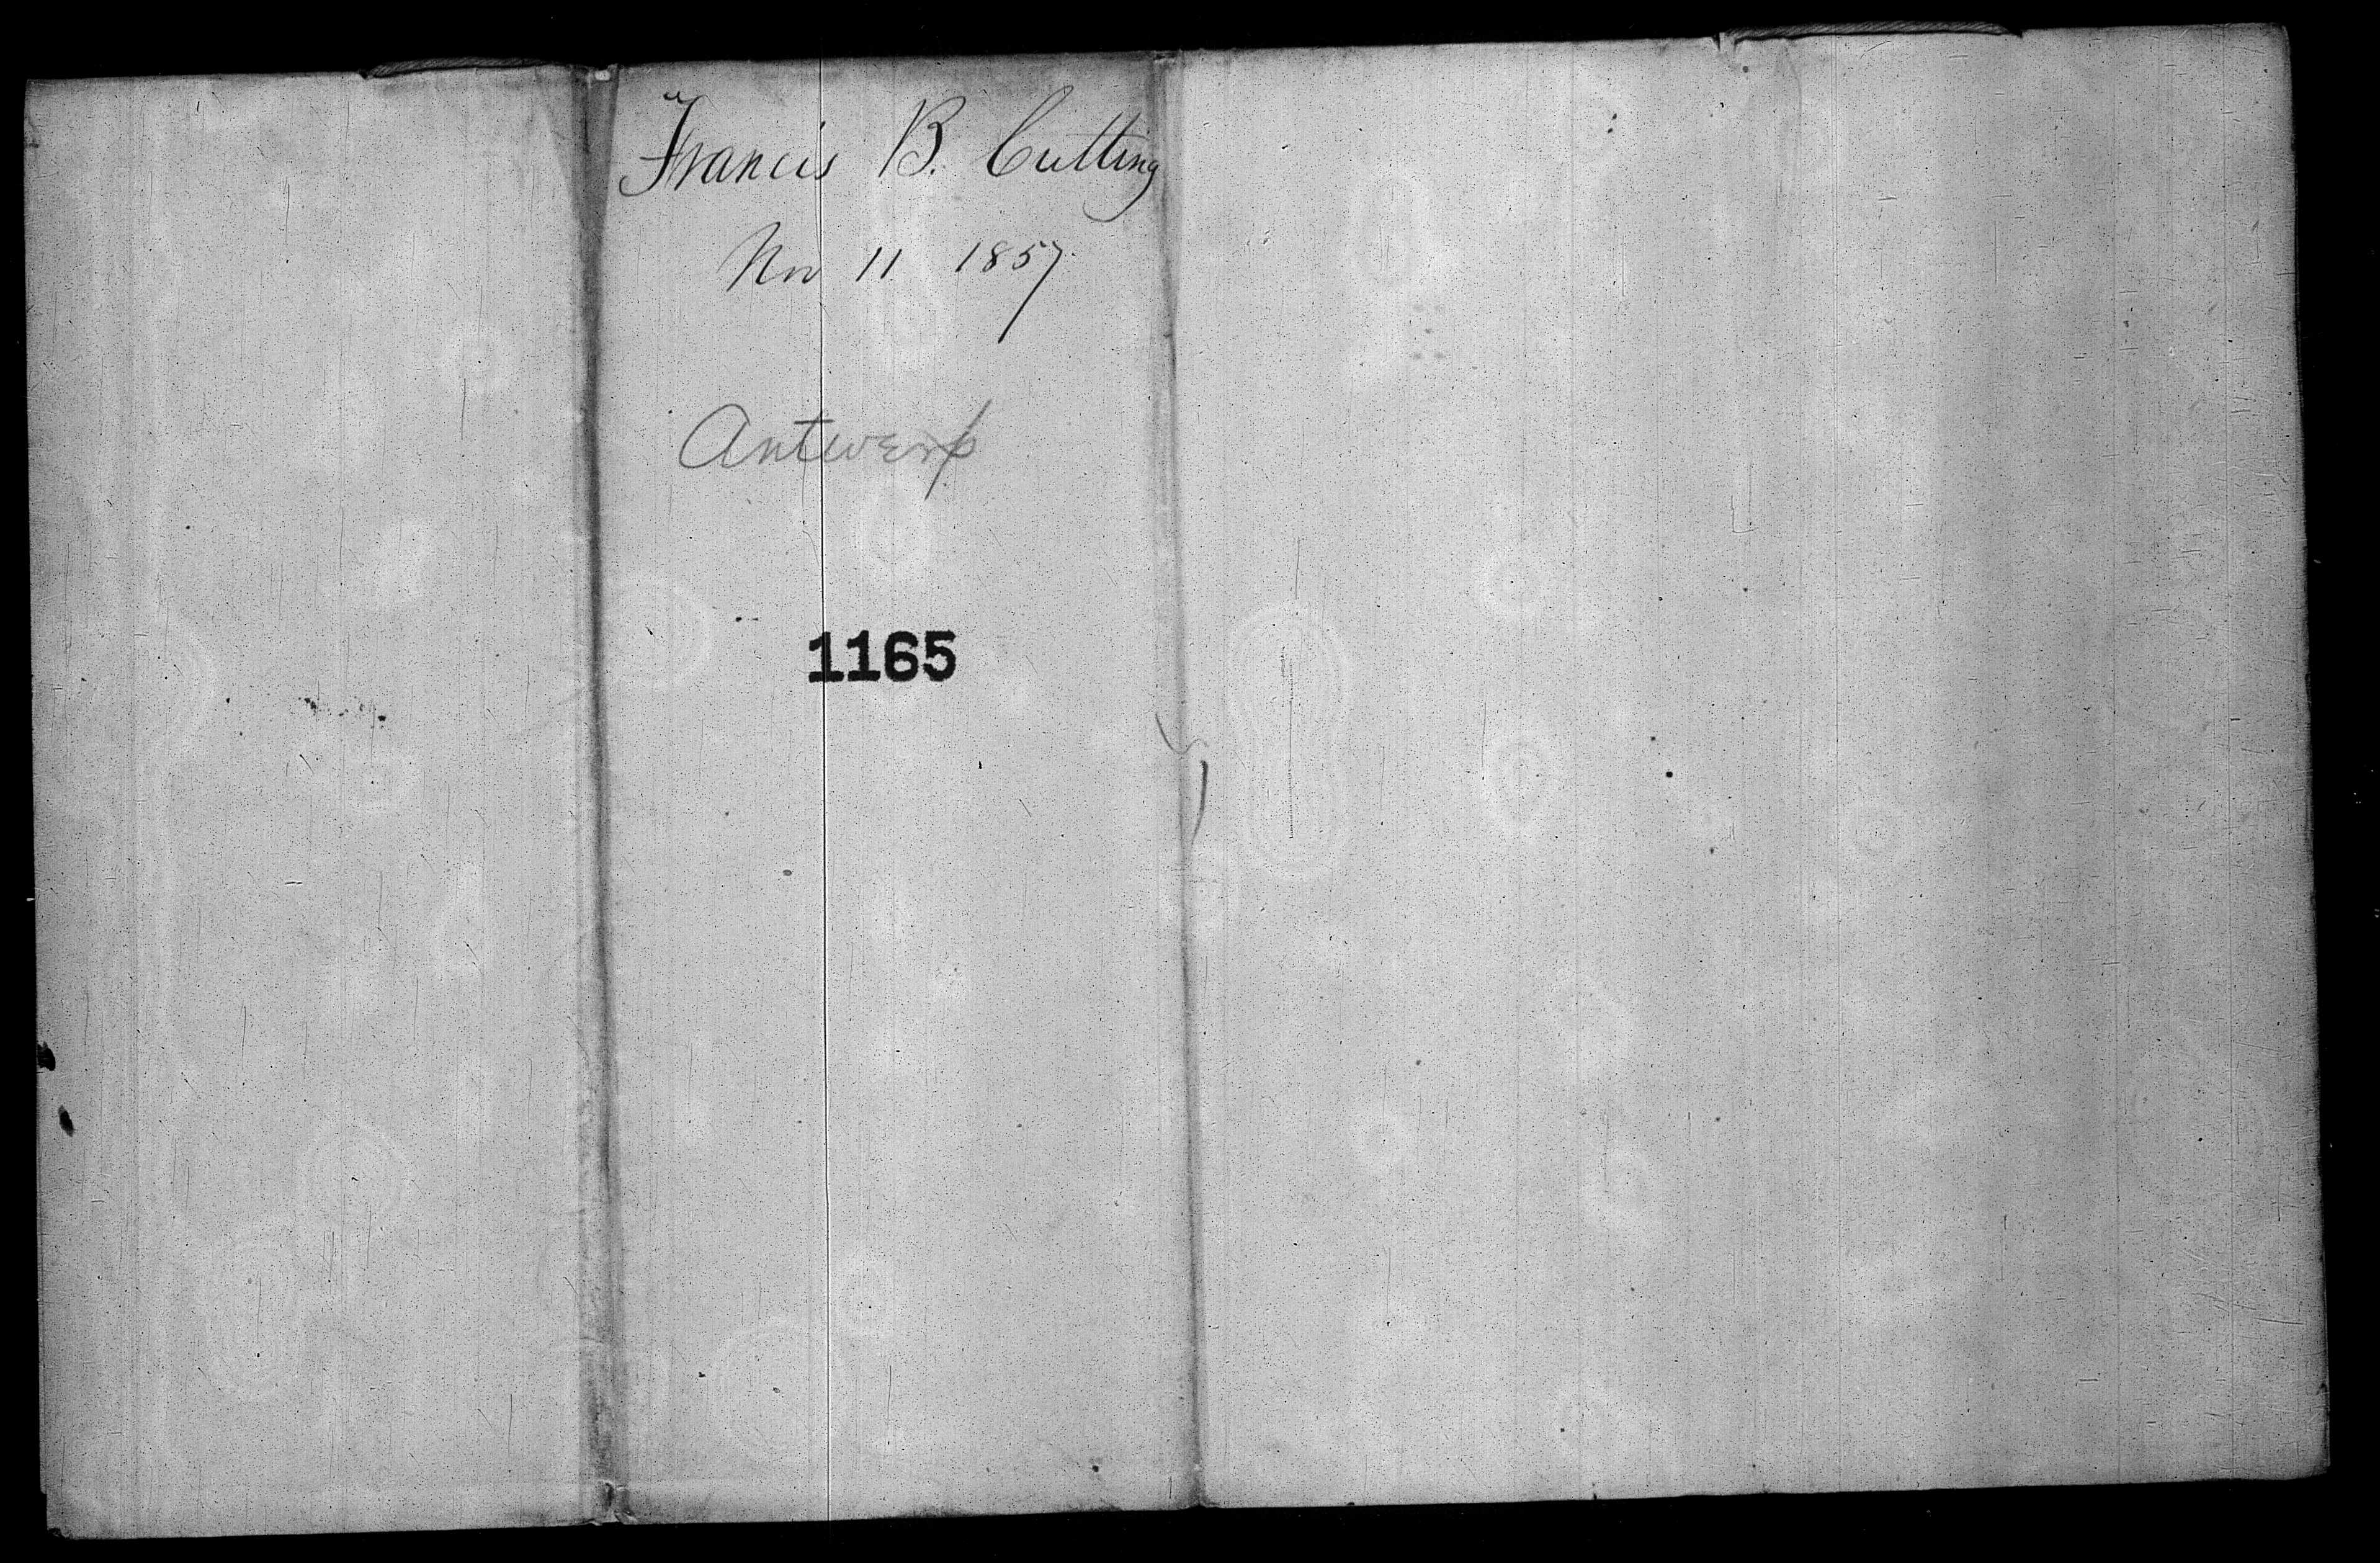 Francis B. Cutting
Nov 11 1857.
Antwerp
1165